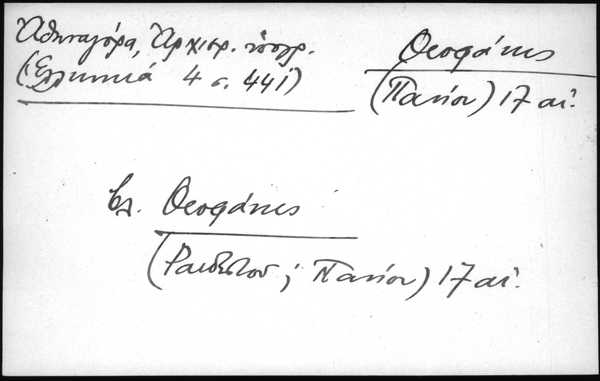 Ἀθηναγόρα, Ἀρχιερ. ὑπογρ.
(Ἑλληνικά 4 σ. 441)
Θεοφάνης
(Πανίου) 17 αἰ.
βλ. Θεοφάνης
(Ραιδεστοῦ; Πανίου) 17 αἰ.